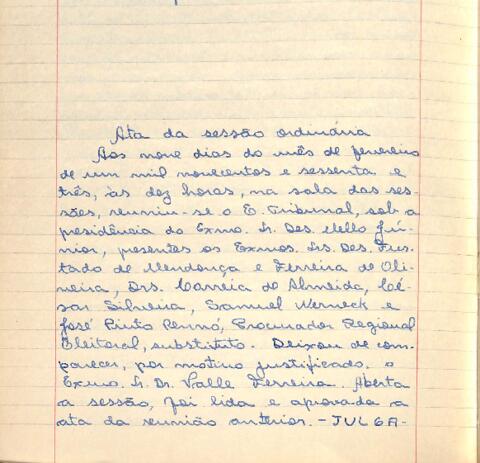 Ata da sessão ordinária
Aos nove dias do mês de fevereiro
de um mil novecentos e sessenta e
três, às dez horas, na sala das ses-
sões, reuniu-se o E. Tribunal, sob a
presidência do Exmo. Sr. Des. Mello Jú-
nior, presentes os Exmos. Srs. Des. Fur-
tado de Mendonça e Ferreira de Oli-
veira, Drs. Correia de Almeida, Cé-
sar Silveira, Samuel Werneck e
José Pinto Renno, Procurador Regional
Eleitoral, substituto. Deixou de com-
parecer, por motivo justificado, o
Exmo. Sr. Dr. Valle Ferreira. Aberta
a sessão, foi lida e aprovada a
ata da reunião anterior. - JULGA-